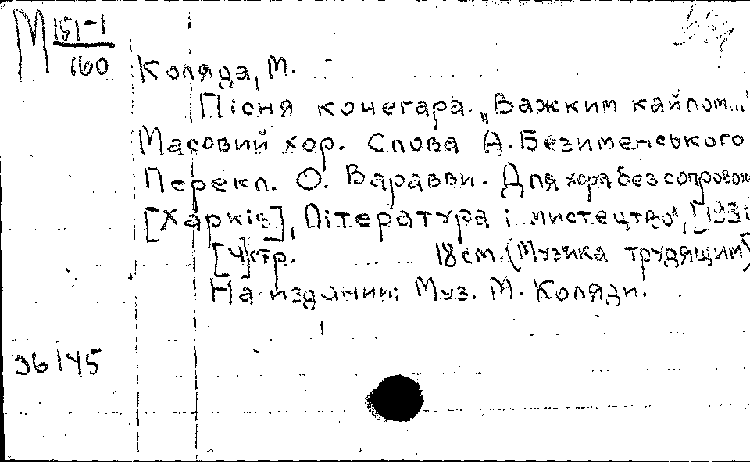 М 151-1
160
Коляда, М.
Пісня кочегара. „Важким кайлом..."
Масовий хор. Слова А. Безименського
Перекл. О. Варавви. Для хора без сопровож
[Харків], Література і мистецтво, [193
[4]стр. 18 см. (Музика трудящим)
На издании: Муз. М. Коляди.
36145